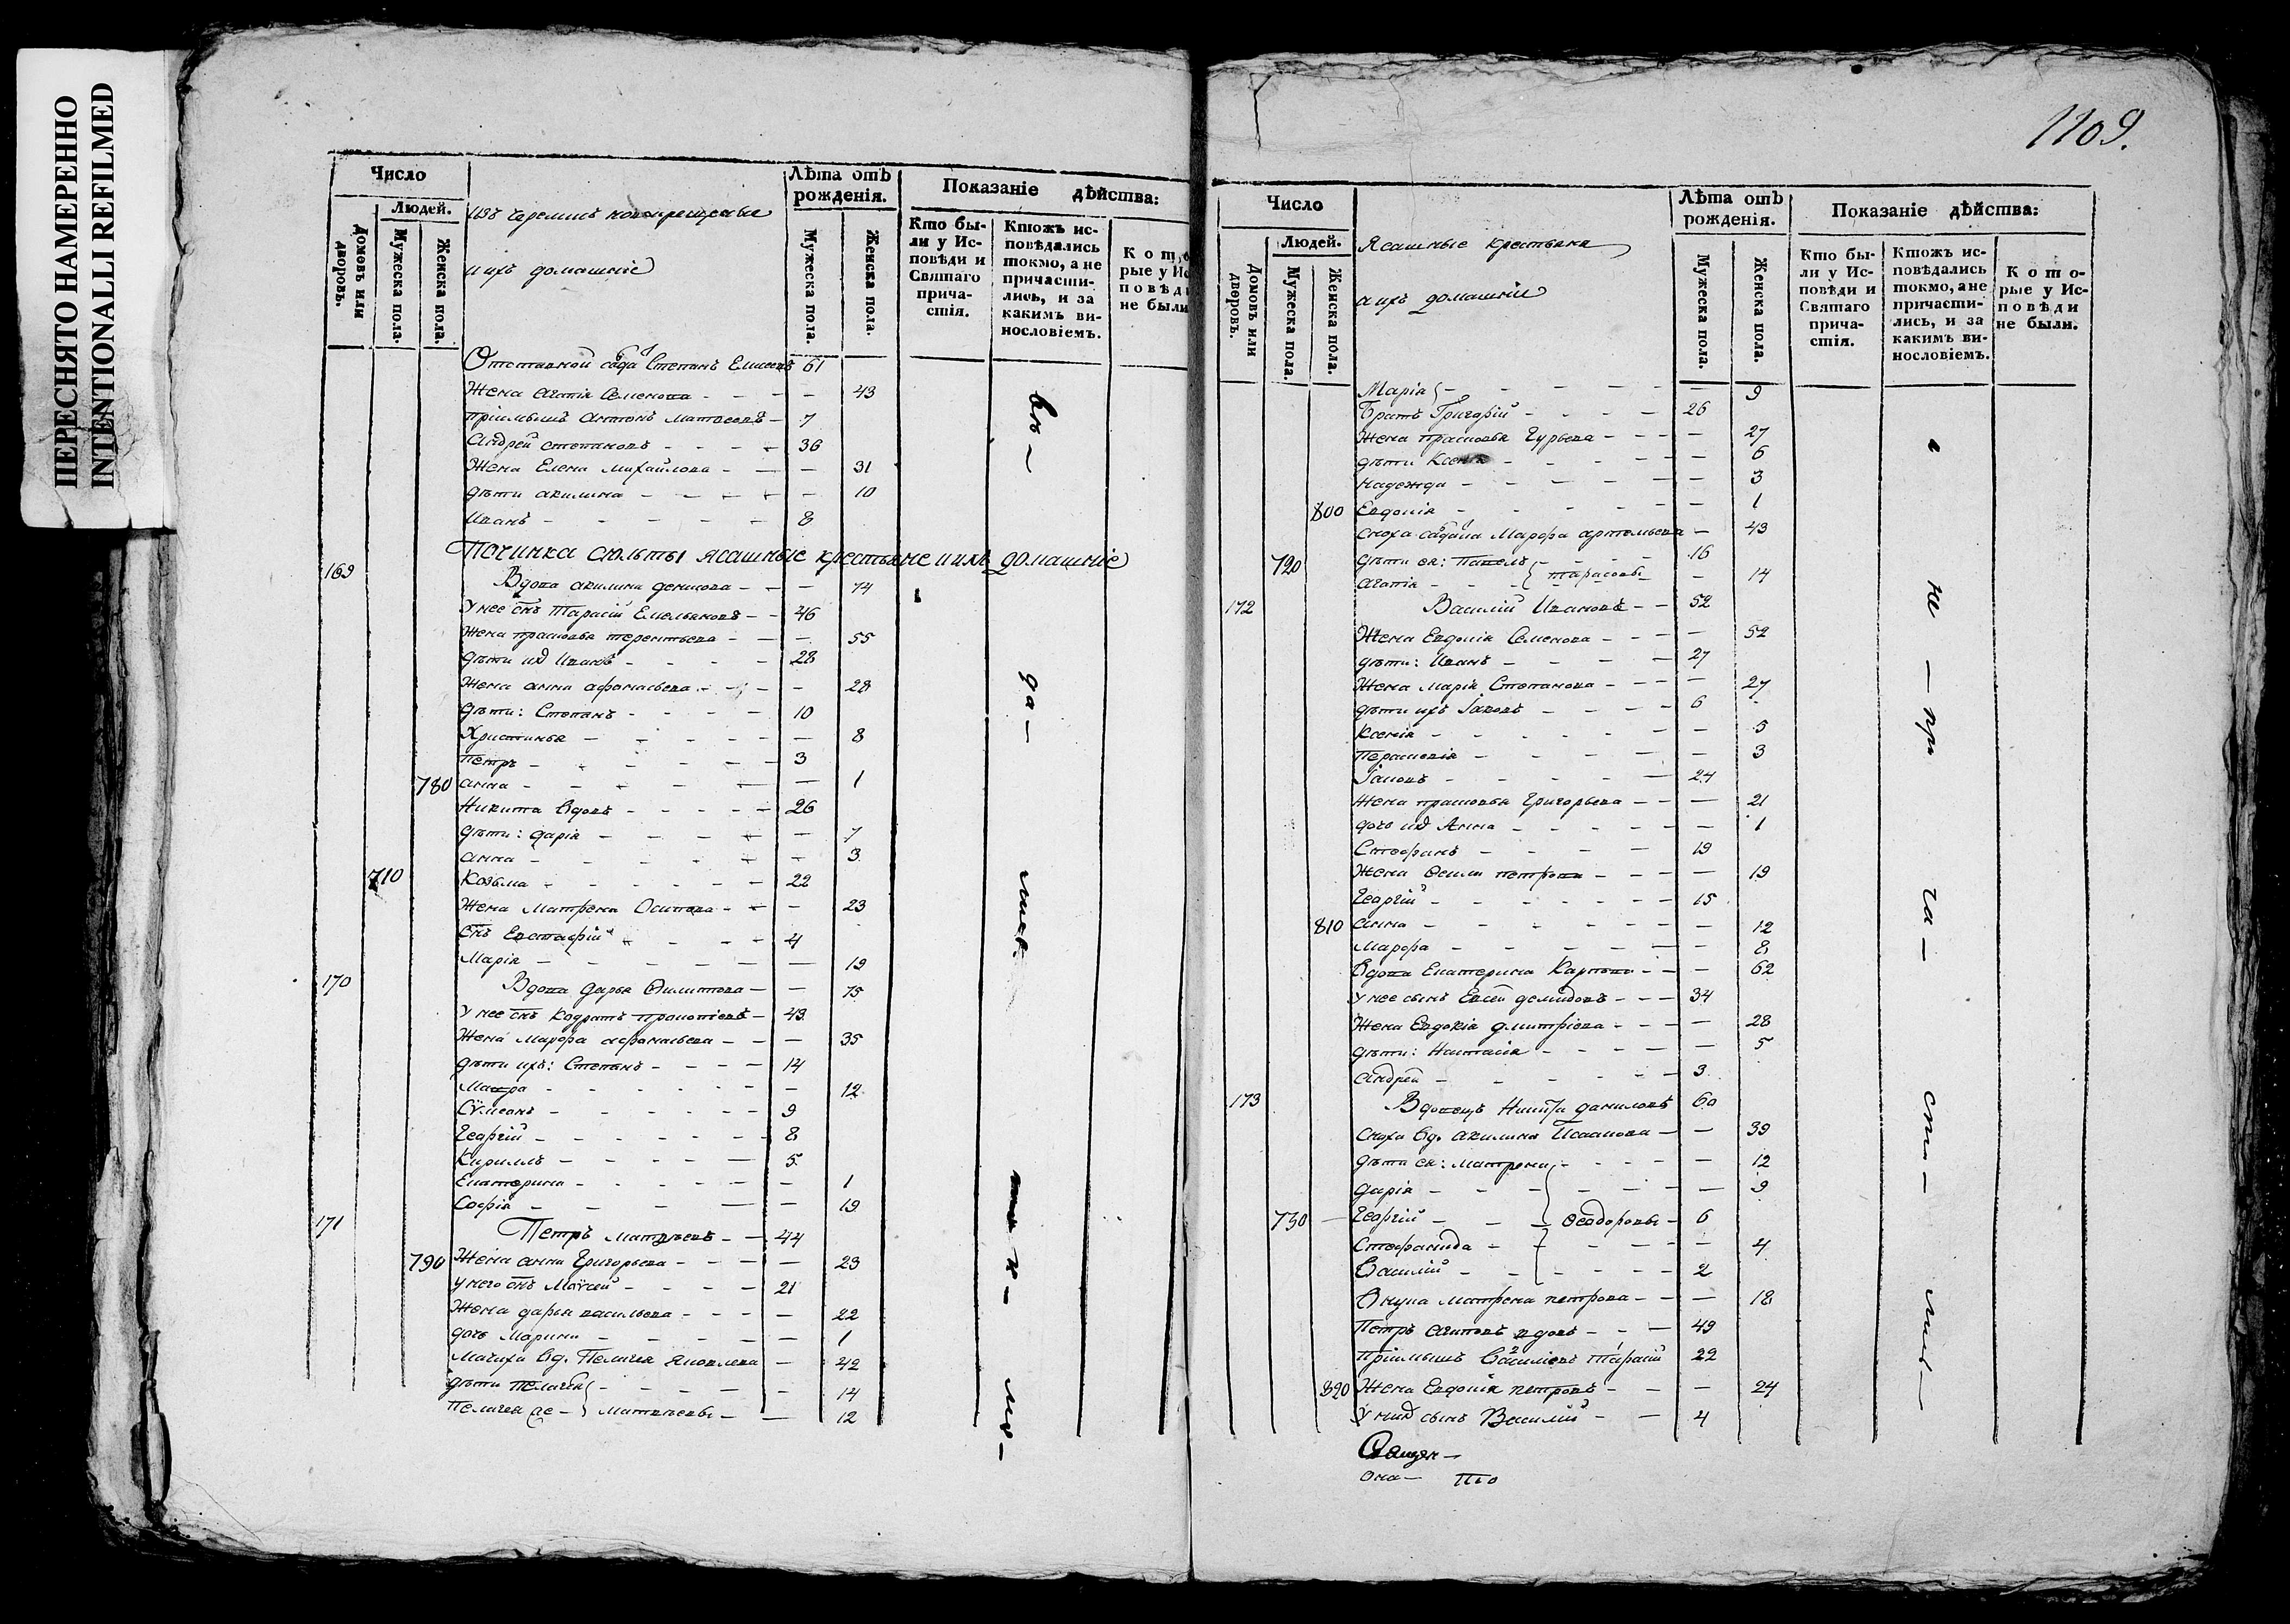 ПЕРЕСНЯТО НАМЕРЕННО
INTENTIONALLI REFILMED
Число
Людей.
Домовъ или дворовъ.
Мужеска пола.
Женска пола.
изъ черемисъ новокрещеные
и ихъ домашніе
Лѣта отъ рожденія.
Мужеска пола.
Женска пола.
Показаніе дѣйства:
Кто были у Исповѣди и Святаго причастія.
Ктожъ исповѣдались токмо, а не причастились, и за какимъ винословіемъ.
Которые у Исповѣди не были
Отставной Степанъ Елисеевъ 61
Жена Агапія Семенова - - - 43
пріимышъ Антонъ Матвеевъ - 7
Андрей степановъ - - - - 36
Жена Елена Михайлова - - - 31
дѣти акилина - - - - - 10
Иванъ - - - - - 8
Починка сюльты ясашные крестьяне и ихъ домашніе
169 Вдова акилина денисова - - 74
У нее снъ Тарасій Емельяновъ - - 46
Жена прасковья терентьева - - - 55
дѣти их Иванъ - - - - 28
Жена анна афанасьева - - - - 28
Дѣти: Степанъ - - - - 10
Христинья - - - - - - 8
петръ - - - - - - 3
780 анна - - - - - - 1
Никита вдовъ - - - - - 26
дѣти: дарія - - - - - 7
анна - - - - - - 3
710 Козьма - - - - - - 22
Жена Матрена Осипова - - - 23
снъ Евстафій - - - - 4
Марія - - - - - - 19
170 Вдова дарья Филиппова - - 75
У нее снъ Кодратъ прокопіевъ - 43
Жена Марфа афанасьева - - - 35
дѣти ихъ: Степанъ - - - - 14
Мавра - - - - - - 12
Сѵмеонъ - - - - - - 9
Георгій - - - - - - 8
Кириллъ - - - - - 5
Екатерина - - - - - - 1
Софія - - - - - 19
171 Петръ Матвѣевъ - - 44
790 Жена анна Григорьева - - - - 23
у него снъ Моѵсей - - - - 21
Жена дарья васильева - - - - 22
дочь Марина - - - - - - 1
Мачиха вд. Пелагея Яковлева - 42
дѣти пелагея - - - - - - 14
Пелагея - Матвѣевы - - 12
вѣ -
да -
лись
к -
мо -
1109.
Число
Людей.
Домовъ или дворовъ.
Мужеска пола.
Женска пола.
Ясашные крестьяна
и ихъ домашніе
Лѣта отъ рожденія.
Мужеска пола.
Женска пола.
Показаніе дѣйства:
Кто были у Исповѣди и Святаго причастія.
Ктожъ исповѣдались токмо, а не причастились, и за какимъ винословіемъ.
Которые у Исповѣди не были.
Марія - - - - - - 9
Братъ Григорій - - - - 26
Жена прасковья Гурьева - - - - 27
дѣти Ксенія - - - - - - 6
надежда - - - - - - 3
800 Евдокія - - - - - - 1
сноха Марфа артемьева - 43
720 Дѣти ея: павелъ - - - - 16
агапія - - тарасовы - - 14
172 Василій Ивановъ - - 52
Жена Евдокія Семенова - - - - 52
дѣти: Иванъ - - - - 27
Жена Марія Степанова - - - - 27
дѣти ихъ Іаковъ - - - - 6
Ксенія - - - - - - 5
Парасковія - - - - - - 3
Іаковъ - - - - - 24
Жена прасковья Григорьева - - - 21
дочь их Анна - - - - - - 1
Стефанъ - - - - - 19
Жена петрова - - - - 19
Георгій - - - - - - 15
810 анна - - - - - - - 12
Марфа - - - - - - - 8
Вдова Екатерина Карпова - - - 62
У нее сынъ Евсей демидовъ - - - 34
Жена Евдокія дмитріева - - - - 28
дѣти: Настасія - - - - - 5
андрей - - - - - - 3
173 Вдовецъ Никита даниловъ 60
Сноха вд. акилина Исаакова - - 39
дѣти ея: Матрена - - - - - 12
дарія - - - - - - - 9
730 Георгій - - - Феодоровы - 6
Стефанида - - - - - - 4
Василій - - - - - - 2
Внука Матрена петрова - - - 18
Петръ агаповъ вдовъ - - - 49
пріимышъ Василіевъ Тарасій 22
820 Жена Евдокія петровъ - - - 24
У них сынъ Василій - - 4
не
- при
ча -
сти -
лись -
Священ -